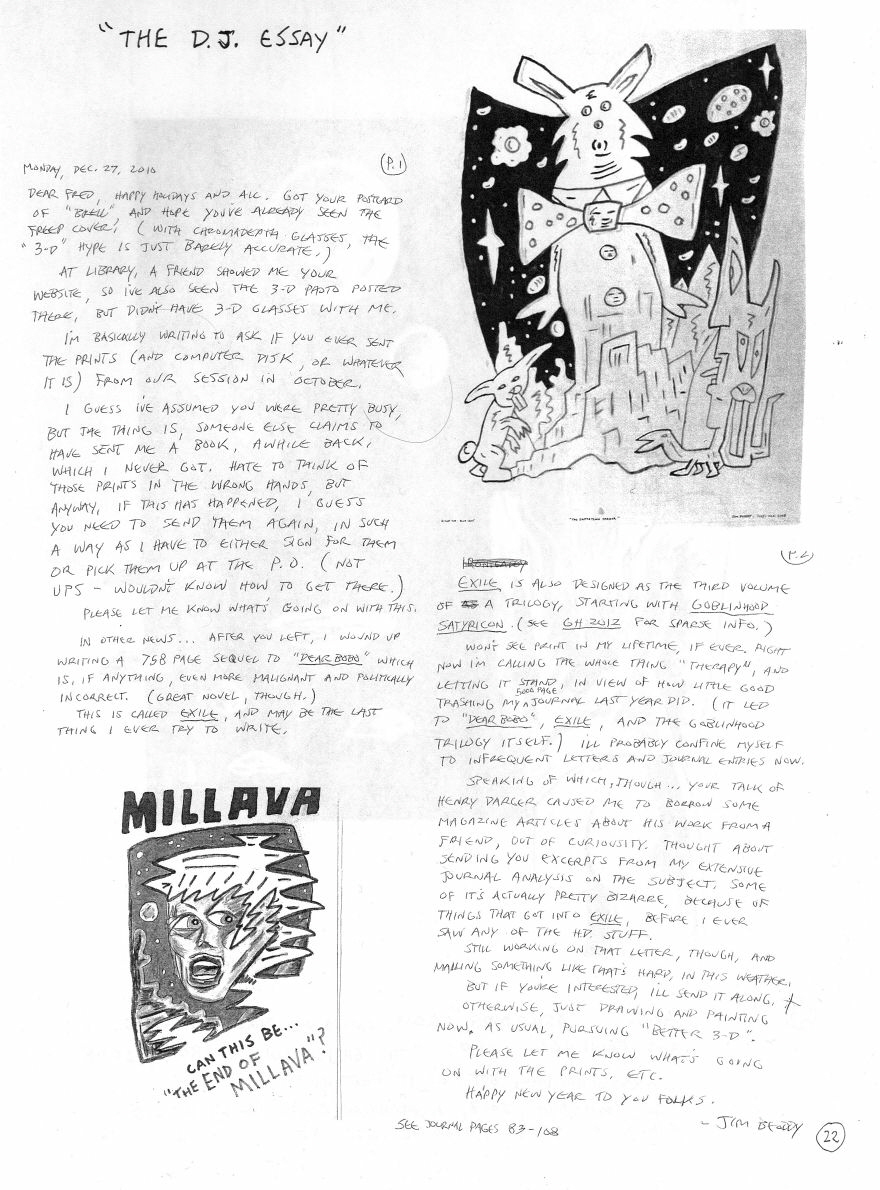 "THE D.J. ESSAY"
P.1
MONDAY, DEC. 27, 2010
DEAR FRED, HAPPY HOLIDAYS AND ALL. GOT YOUR POSTCARD
OF " ", AND HOPE YOU'VE ALREADY SEEN THE
FREEP COVER. (WITH CHROMADEPTH GLASSES, THE
"3-D" HYPE IS JUST BARELY ACCURATE.)
AT LIBRARY, A FRIEND SHOWED ME YOUR
WEBSITE, SO I'VE ALSO SEEN THE 3-D PHOTO POSTED
THERE, BUT DIDN'T HAVE 3-D GLASSES WITH ME.
I'M BASICALLY WRITING TO ASK IF YOU EVER SENT
THE PRINTS (AND COMPUTER DISK, OR WHATEVER
IT IS) FROM OUR SESSION IN OCTOBER.
I GUESS I'VE ASSUMED YOU WERE PRETTY BUSY,
BUT THE THING IS, SOMEONE ELSE CLAIMS TO
HAVE SENT ME A BOOK, AWHILE BACK,
WHICH I NEVER GOT. HATE TO THINK OF
THOSE PRINTS IN THE WRONG HANDS, BUT
ANYWAY, IF THIS HAS HAPPENED, I GUESS
YOU NEED TO SEND THEM AGAIN, IN SUCH
A WAY AS I HAVE TO EITHER SIGN FOR THEM
OR PICK THEM UP AT THE P.O. (NOT
UPS – WOULDN'T KNOW HOW TO GET THERE.)
PLEASE LET ME KNOW WHAT'S GOING ON WITH THIS.
IN OTHER NEWS... AFTER YOU LEFT, I WOUND UP
WRITING A 758 PAGE SEQUEL TO "DEAR BOBO" WHICH
IS, IF ANYTHING, EVEN MORE MALIGNANT AND POLITICALLY
INCORRECT. (GREAT NOVEL, THOUGH.)
THIS IS CALLED EXILE, AND MAY BE THE LAST
THING I EVER TRY TO WRITE.
MILLAVA
CAN THIS BE...
"THE END OF
MILLAVA"?
P.2
EXILE IS ALSO DESIGNED AS THE THIRD VOLUME
OF A TRILOGY, STARTING WITH GOBLINHOOD
SATYRICON. (SEE GH 2012 FOR SPARSE INFO.)
WON'T SEE PRINT IN MY LIFETIME, IF EVER. RIGHT
NOW I'M CALLING THE WHOLE THING "THERAPY", AND
LETTING IT STAND, IN VIEW OF HOW LITTLE GOOD
TRASHING MY 5000 PAGE JOURNAL LAST YEAR DID. (IT LED
TO "DEAR BOBO", EXILE, AND THE GOBLINHOOD
TRILOGY ITSELF.) I'LL PROBABLY CONFINE MYSELF
TO INFREQUENT LETTERS AND JOURNAL ENTRIES NOW.
SPEAKING OF WHICH, THOUGH... YOUR TALK OF
HENRY DARGER CAUSED ME TO BORROW SOME
MAGAZINE ARTICLES ABOUT HIS WORK FROM A
FRIEND, OUT OF CURIOSITY. THOUGHT ABOUT
SENDING YOU EXCERPTS FROM MY EXTENSIVE
JOURNAL ANALYSIS ON THE SUBJECT. SOME
OF IT'S ACTUALLY PRETTY BIZARRE, BECAUSE OF
THINGS THAT GOT INTO EXILE, BEFORE I EVER
SAW ANY OF THE H.D. STUFF.
STILL WORKING ON THAT LETTER, THOUGH, AND
MAILING SOMETHING LIKE THAT'S HARD, IN THIS WEATHER.
BUT IF YOU'RE INTERESTED, I'LL SEND IT ALONG. *
OTHERWISE, JUST DRAWING AND PAINTING
NOW. AS USUAL, PURSUING "BETTER 3-D".
PLEASE LET ME KNOW WHAT'S GOING
ON WITH THE PRINTS, ETC.
HAPPY NEW YEAR TO YOU FOLKS.
– JIM
SEE JOURNAL PAGES 83-108
22